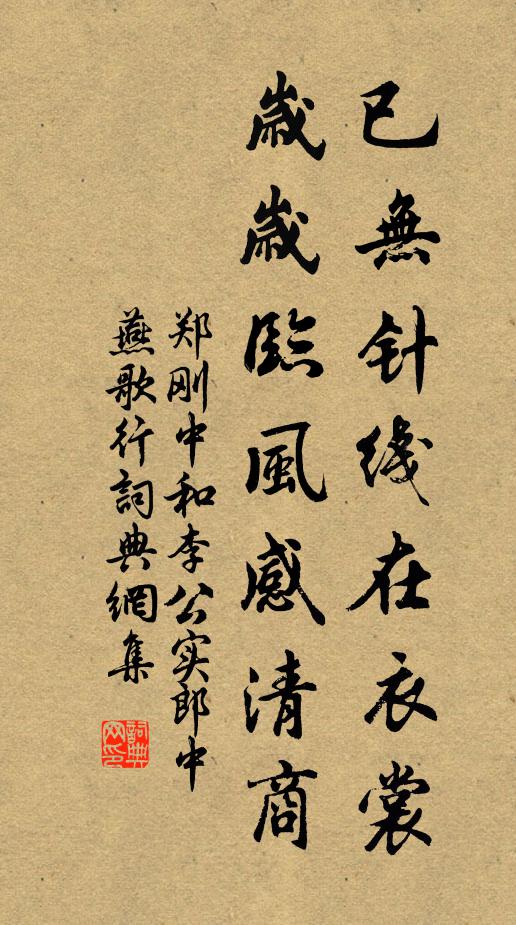 已無针线在衣裳
歲歲臨風感清商
郑刚中和李公实郎中
燕歌行詞典網集
詞典网印